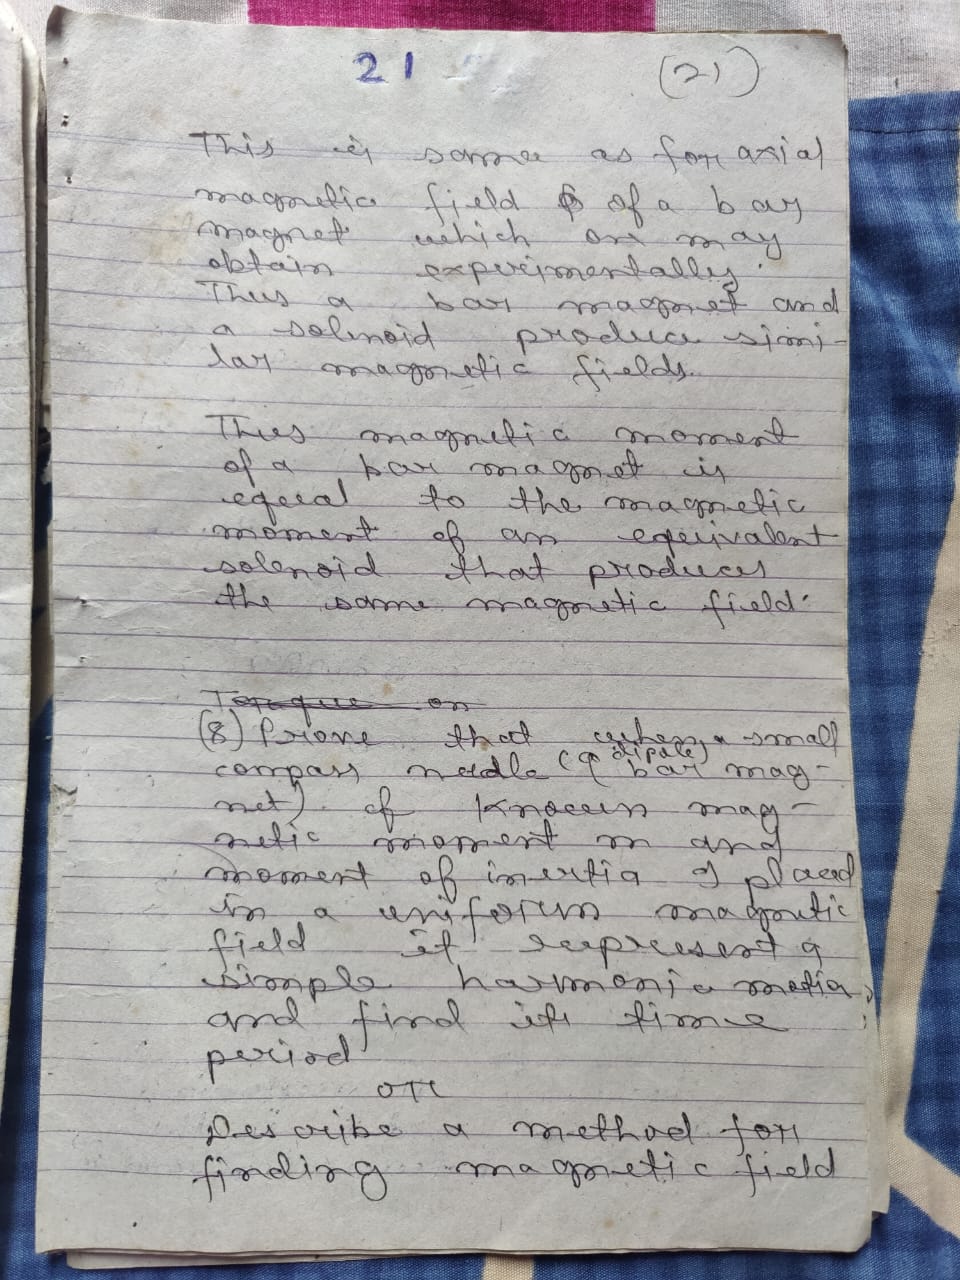 21 (21)
This is same as for axial
magnetic field of a bar
magnet which on may
obtain experimentally.
Thus a bar magnet and
a solenoid produce simi-
lar magnetic fields.
Thus magnetic moment
of a bar magnet is
equal to the magnetic
moment of an equivalent
solenoid that produces
the same magnetic field.
Torque on
(8) Prove that when a small
compass needle (a dipole, bar mag-
net) of known mag-
netic moment m and
moment of inertia I placed
in a uniform magnetic
field it represent a
simple harmonic motion,
and find its time
period
OR
Describe a method for
finding magnetic field